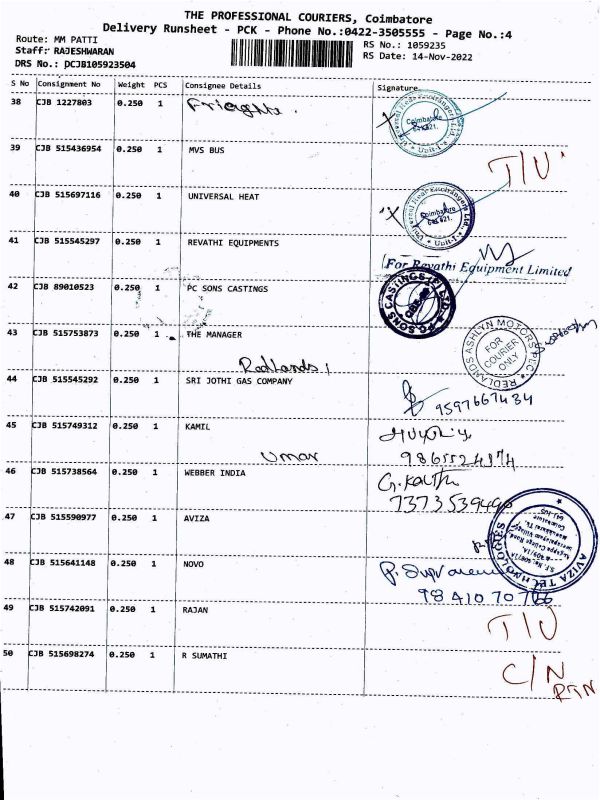 THE PROFESSIONAL COURIERS, Coimbatore
Delivery Runsheet - PCK - Phone No.:0422-3505555 - Page No.:4
Route: MM PATTI
RS No.: 1059235
Staff: RAJESHWARAN
RS Date: 14-Nov-2022
DRS No.: DCJB105923504
S No Consignment No Weight PCS Consignee Details Signature
38 CJB 1227803 0.250 1
Coimbatore
641 021.
Unit-I
39 CJB 515436954 0.250 1 MVS BUS
T/U
40 CJB 515697116 0.250 1 UNIVERSAL HEAT
Coimbatore
641 021.
Unit-I
41 CJB 515545297 0.250 1 REVATHI EQUIPMENTS
For Revathi Equipment Limited
42 CJB 89010523 0.250 1 PC SONS CASTINGS
PC SONS CASTINGS (P) LTD.
43 CJB 515753873 0.250 1 THE MANAGER
Redlands
REDLANDS ASHLYN MOTORS PLC
FOR
COURIER
ONLY
44 CJB 515545292 0.250 1 SRI JOTHI GAS COMPANY
9597667434
45 CJB 515749312 0.250 1 KAMIL
Umar
9865524374
46 CJB 515738564 0.250 1 WEBBER INDIA
47 CJB 515590977 0.250 1 AVIZA
AVIZA TECHNOLOGIES
48 CJB 515641148 0.250 1 NOVO
49 CJB 515742091 0.250 1 RAJAN
T/U
50 CJB 515698274 0.250 1 R SUMATHI
C/N
RTN